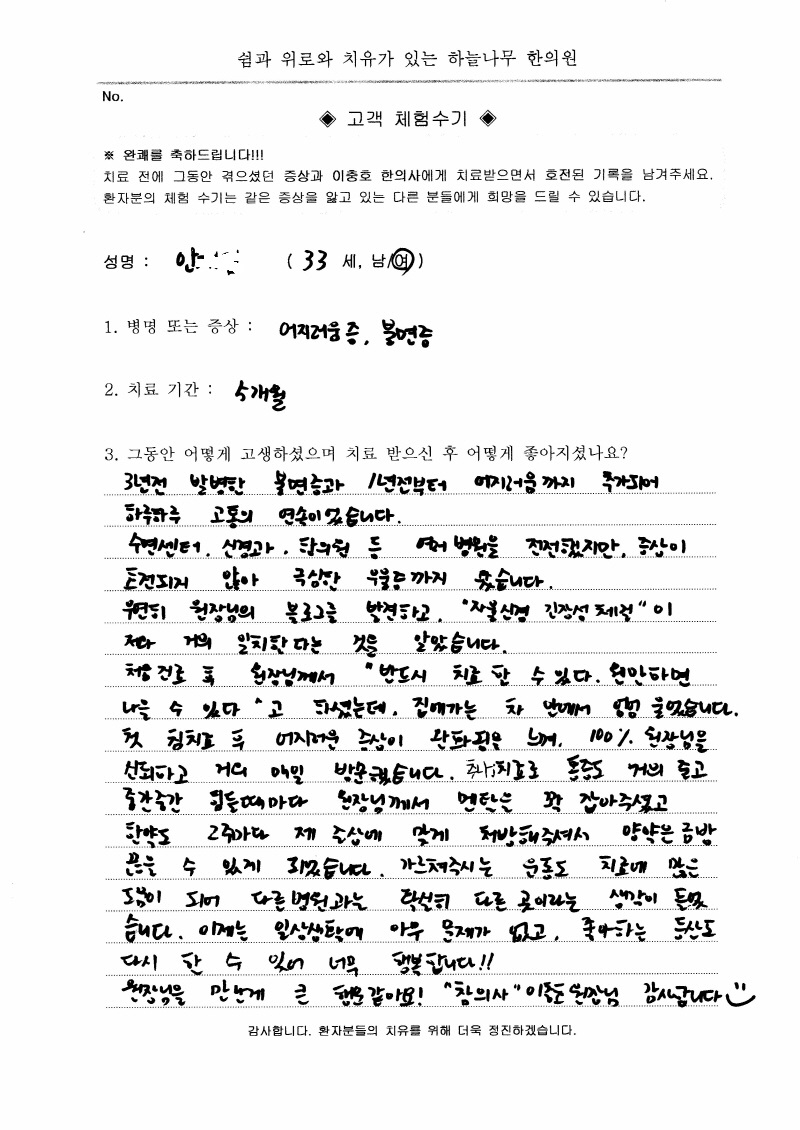 쉼과 위로와 치유가 있는 하늘나무 한의원
No.
◈ 고객 체험수기 ◈
※ 완쾌를 축하드립니다!!!
치료 전에 그동안 겪으셨던 증상과 이충호 한의사에게 치료받으면서 호전된 기록을 남겨주세요.
환자분의 체험 수기는 같은 증상을 앓고 있는 다른 분들에게 희망을 드릴 수 있습니다.
성명 : 안 ( 33 세, 남/여 )
1. 병명 또는 증상 : 어지러움증, 불면증
2. 치료 기간 : 5개월
3. 그동안 어떻게 고생하셨으며 치료 받으신 후 어떻게 좋아지셨나요?
3년전 발병한 불면증과 1년전부터 어지러움까지 추가되어
하루하루 고통의 연속이었습니다.
수면센터, 신경과, 한의원 등 여러 병원을 전전했지만, 증상이
호전되지 않아 극심한 우울증까지 왔습니다.
우연히 원장님의 블로그를 발견하고, "자율신경 긴장성 체질"이
저와 거의 일치한다는 것을 알았습니다.
처음 진료 후 원장님께서 "반드시 치료 할 수 있다. 원인만하면
나을 수 있다"고 하셨는데, 집에가는 차 안에서 엉엉 울었습니다.
첫 침치료 후 어지러운 증상이 완화됨을 느껴, 100% 원장님을
신뢰하고 거의 매일 방문했습니다. 추나치료로 통증도 거의 줄고
중간중간 힘들때마다 원장님께서 멘탈을 꽉 잡아주셨고
한약도 2주마다 제 증상에 맞게 처방해주셔서 양약은 금방
끊을 수 있게 되었습니다. 가르쳐주시는 운동도 치료에 많은
도움이 되어 다른병원과는 확실히 다른 곳이라는 생각이 들었
습니다. 이제는 일상생활에 아무 문제가 없고, 좋아하는 등산도
다시 할 수 있어 너무 행복합니다!!
원장님을 만난게 큰 행운같아요! "참의사" 이충호 원장님 감사합니다
감사합니다. 환자분들의 치유를 위해 더욱 정진하겠습니다.